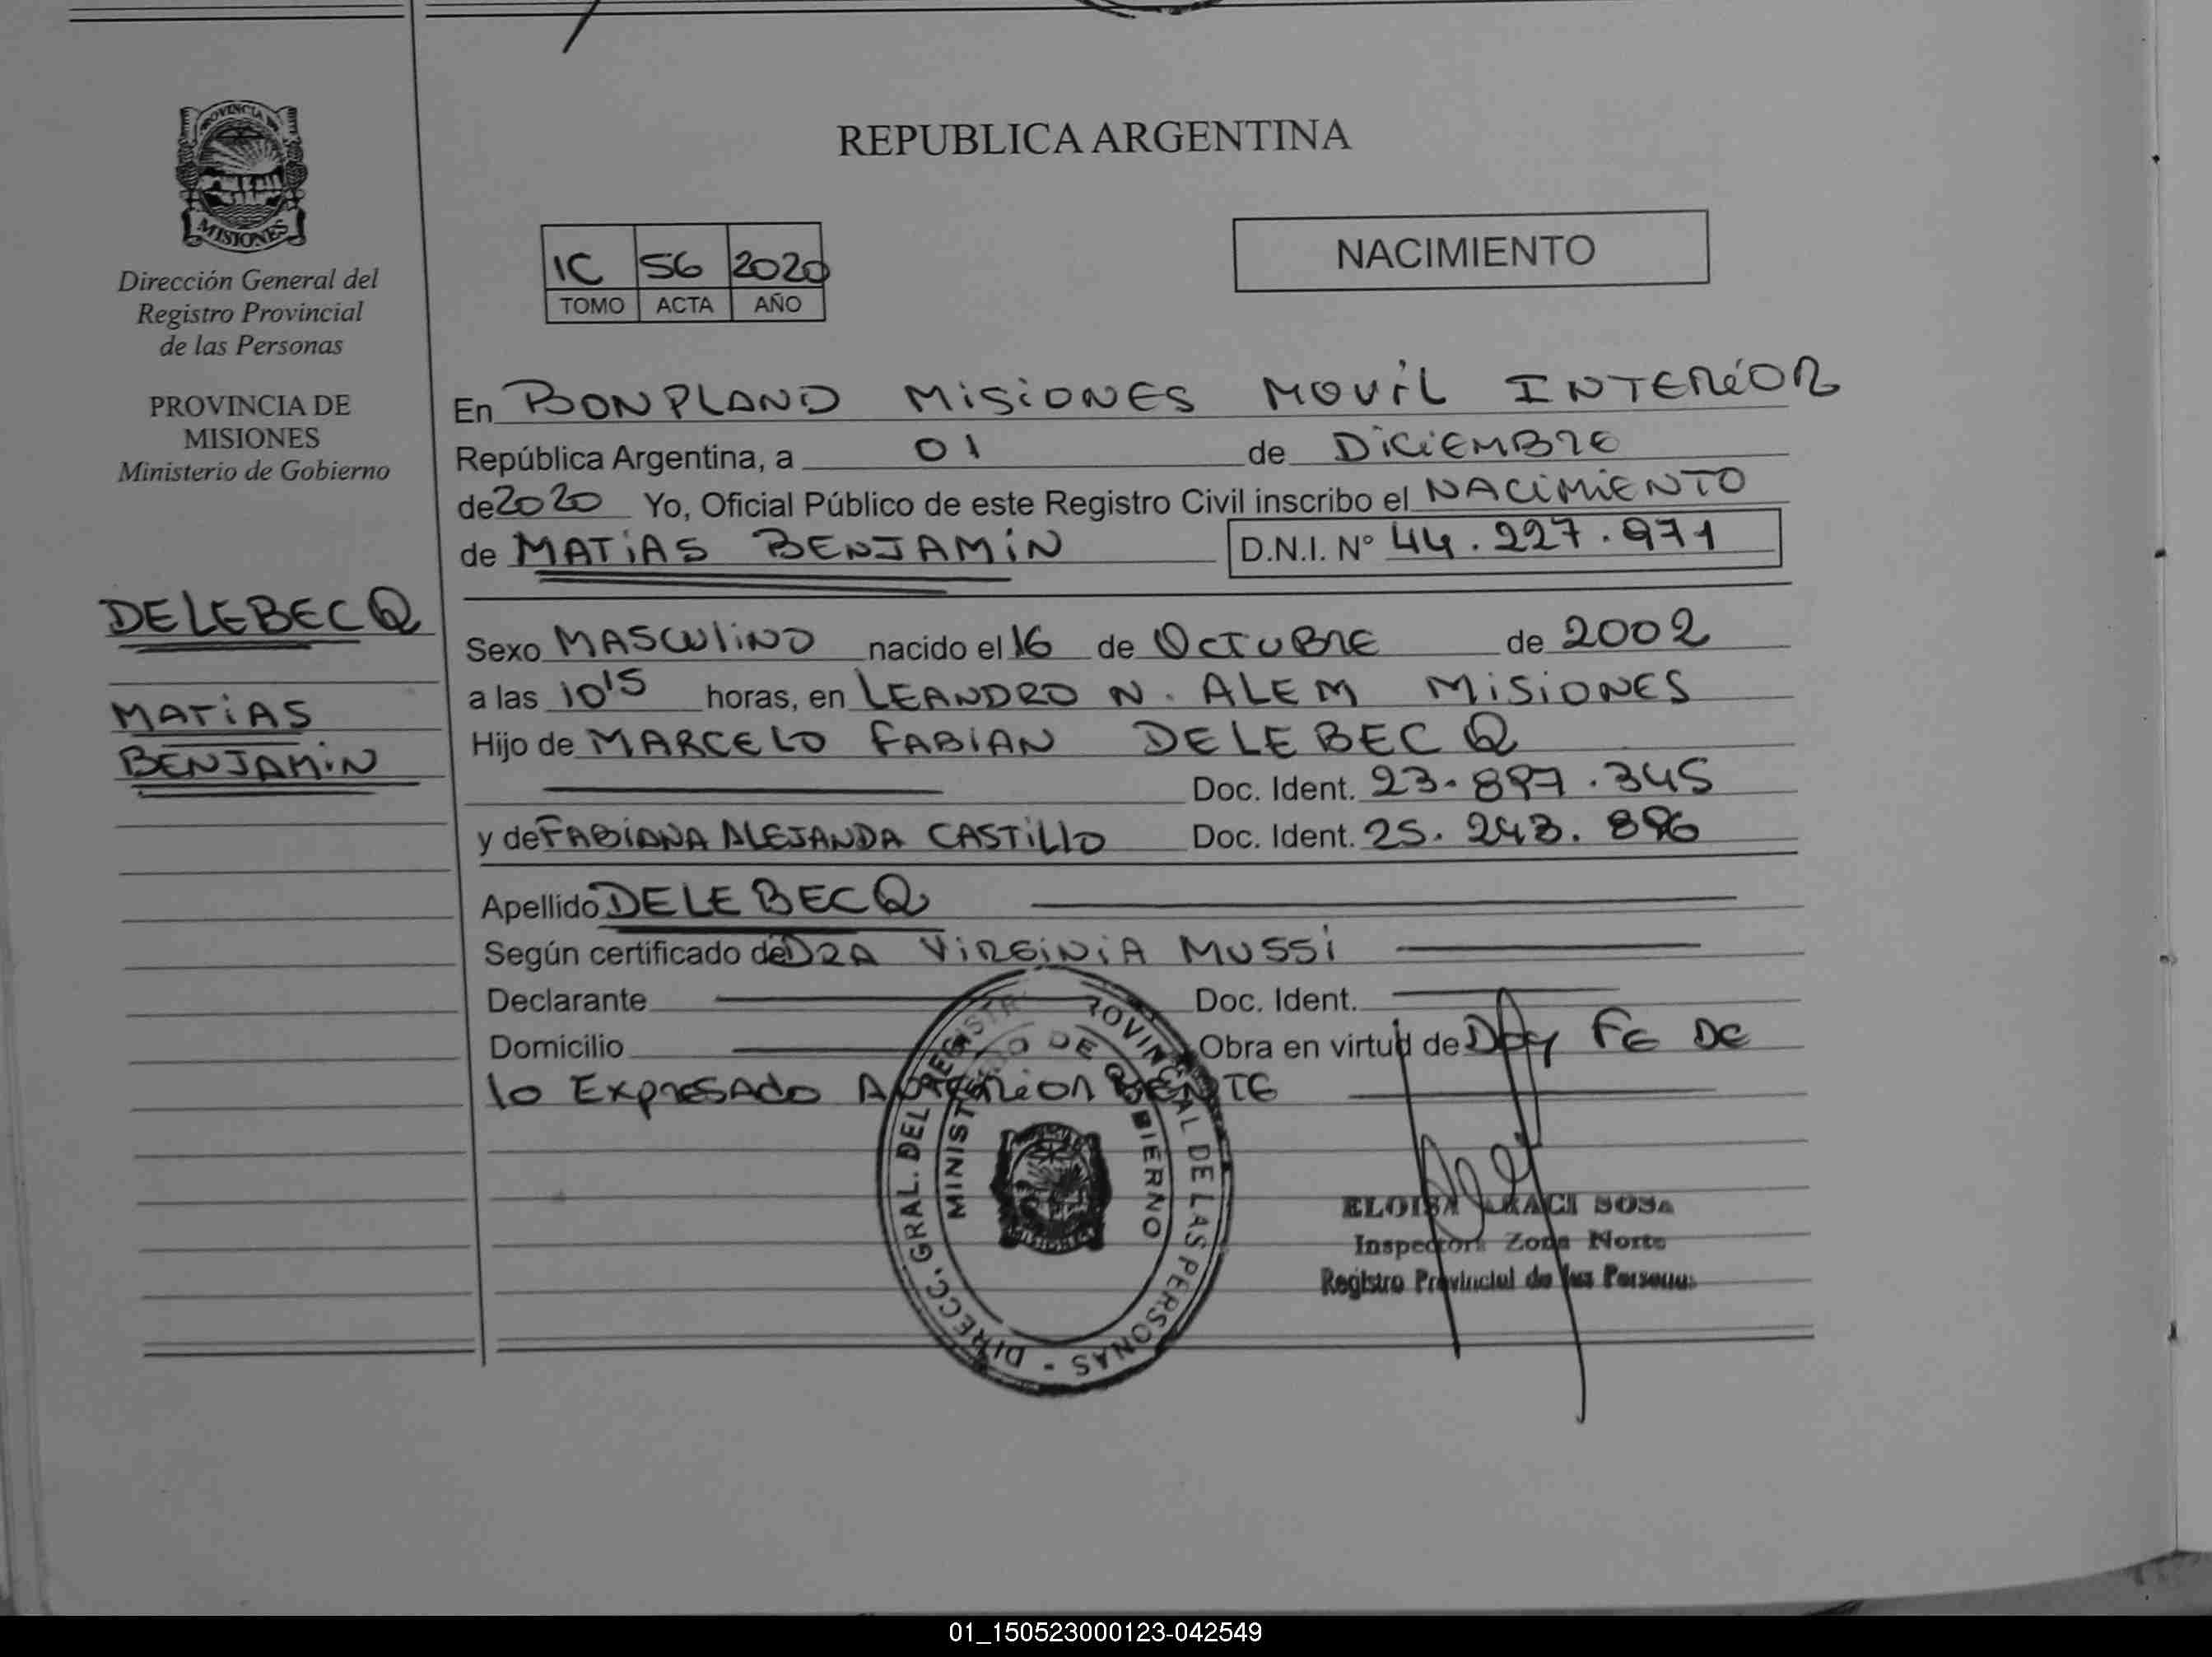 PROVINCIA DE
MISIONES
Dirección General del
Registro Provincial
de las Personas
PROVINCIA DE
MISIONES
Ministerio de Gobierno
DELEBECQ
MATIAS
BENJAMIN
REPUBLICA ARGENTINA
IC 56 2020
TOMO ACTA AÑO
NACIMIENTO
En BONPLAND MISIONES MOVIL INTERIOR
República Argentina, a 01 de DICIEMBRE
de 2020 Yo, Oficial Público de este Registro Civil inscribo el NACIMIENTO
de MATIAS BENJAMIN D.N.I. Nº 44.227.971
Sexo MASCULINO nacido el 16 de OCTUBRE de 2002
a las 10 15 horas, en LEANDRO N. ALEM MISIONES
Hijo de MARCELO FABIAN DELEBECQ
Doc. Ident. 23.897.345
y de FABIANA ALEJANDA CASTILLO Doc. Ident. 25.243.896
Apellido DELEBECQ
Según certificado de DRA VIRGINIA MUSSI
Declarante Doc. Ident.
Domicilio Obra en virtud de Doy FE DE
lo EXPRESADO ANTERIORMENTE
DIRECC. GRAL. DEL REGISTR PROVINCIAL DE LAS PERSONAS -
MINISTERIO DE GOBIERNO
ELOISA ARACI SOSA
Inspectora Zona Norte
Registro Provincial de las Personas
01_150523000123-042549